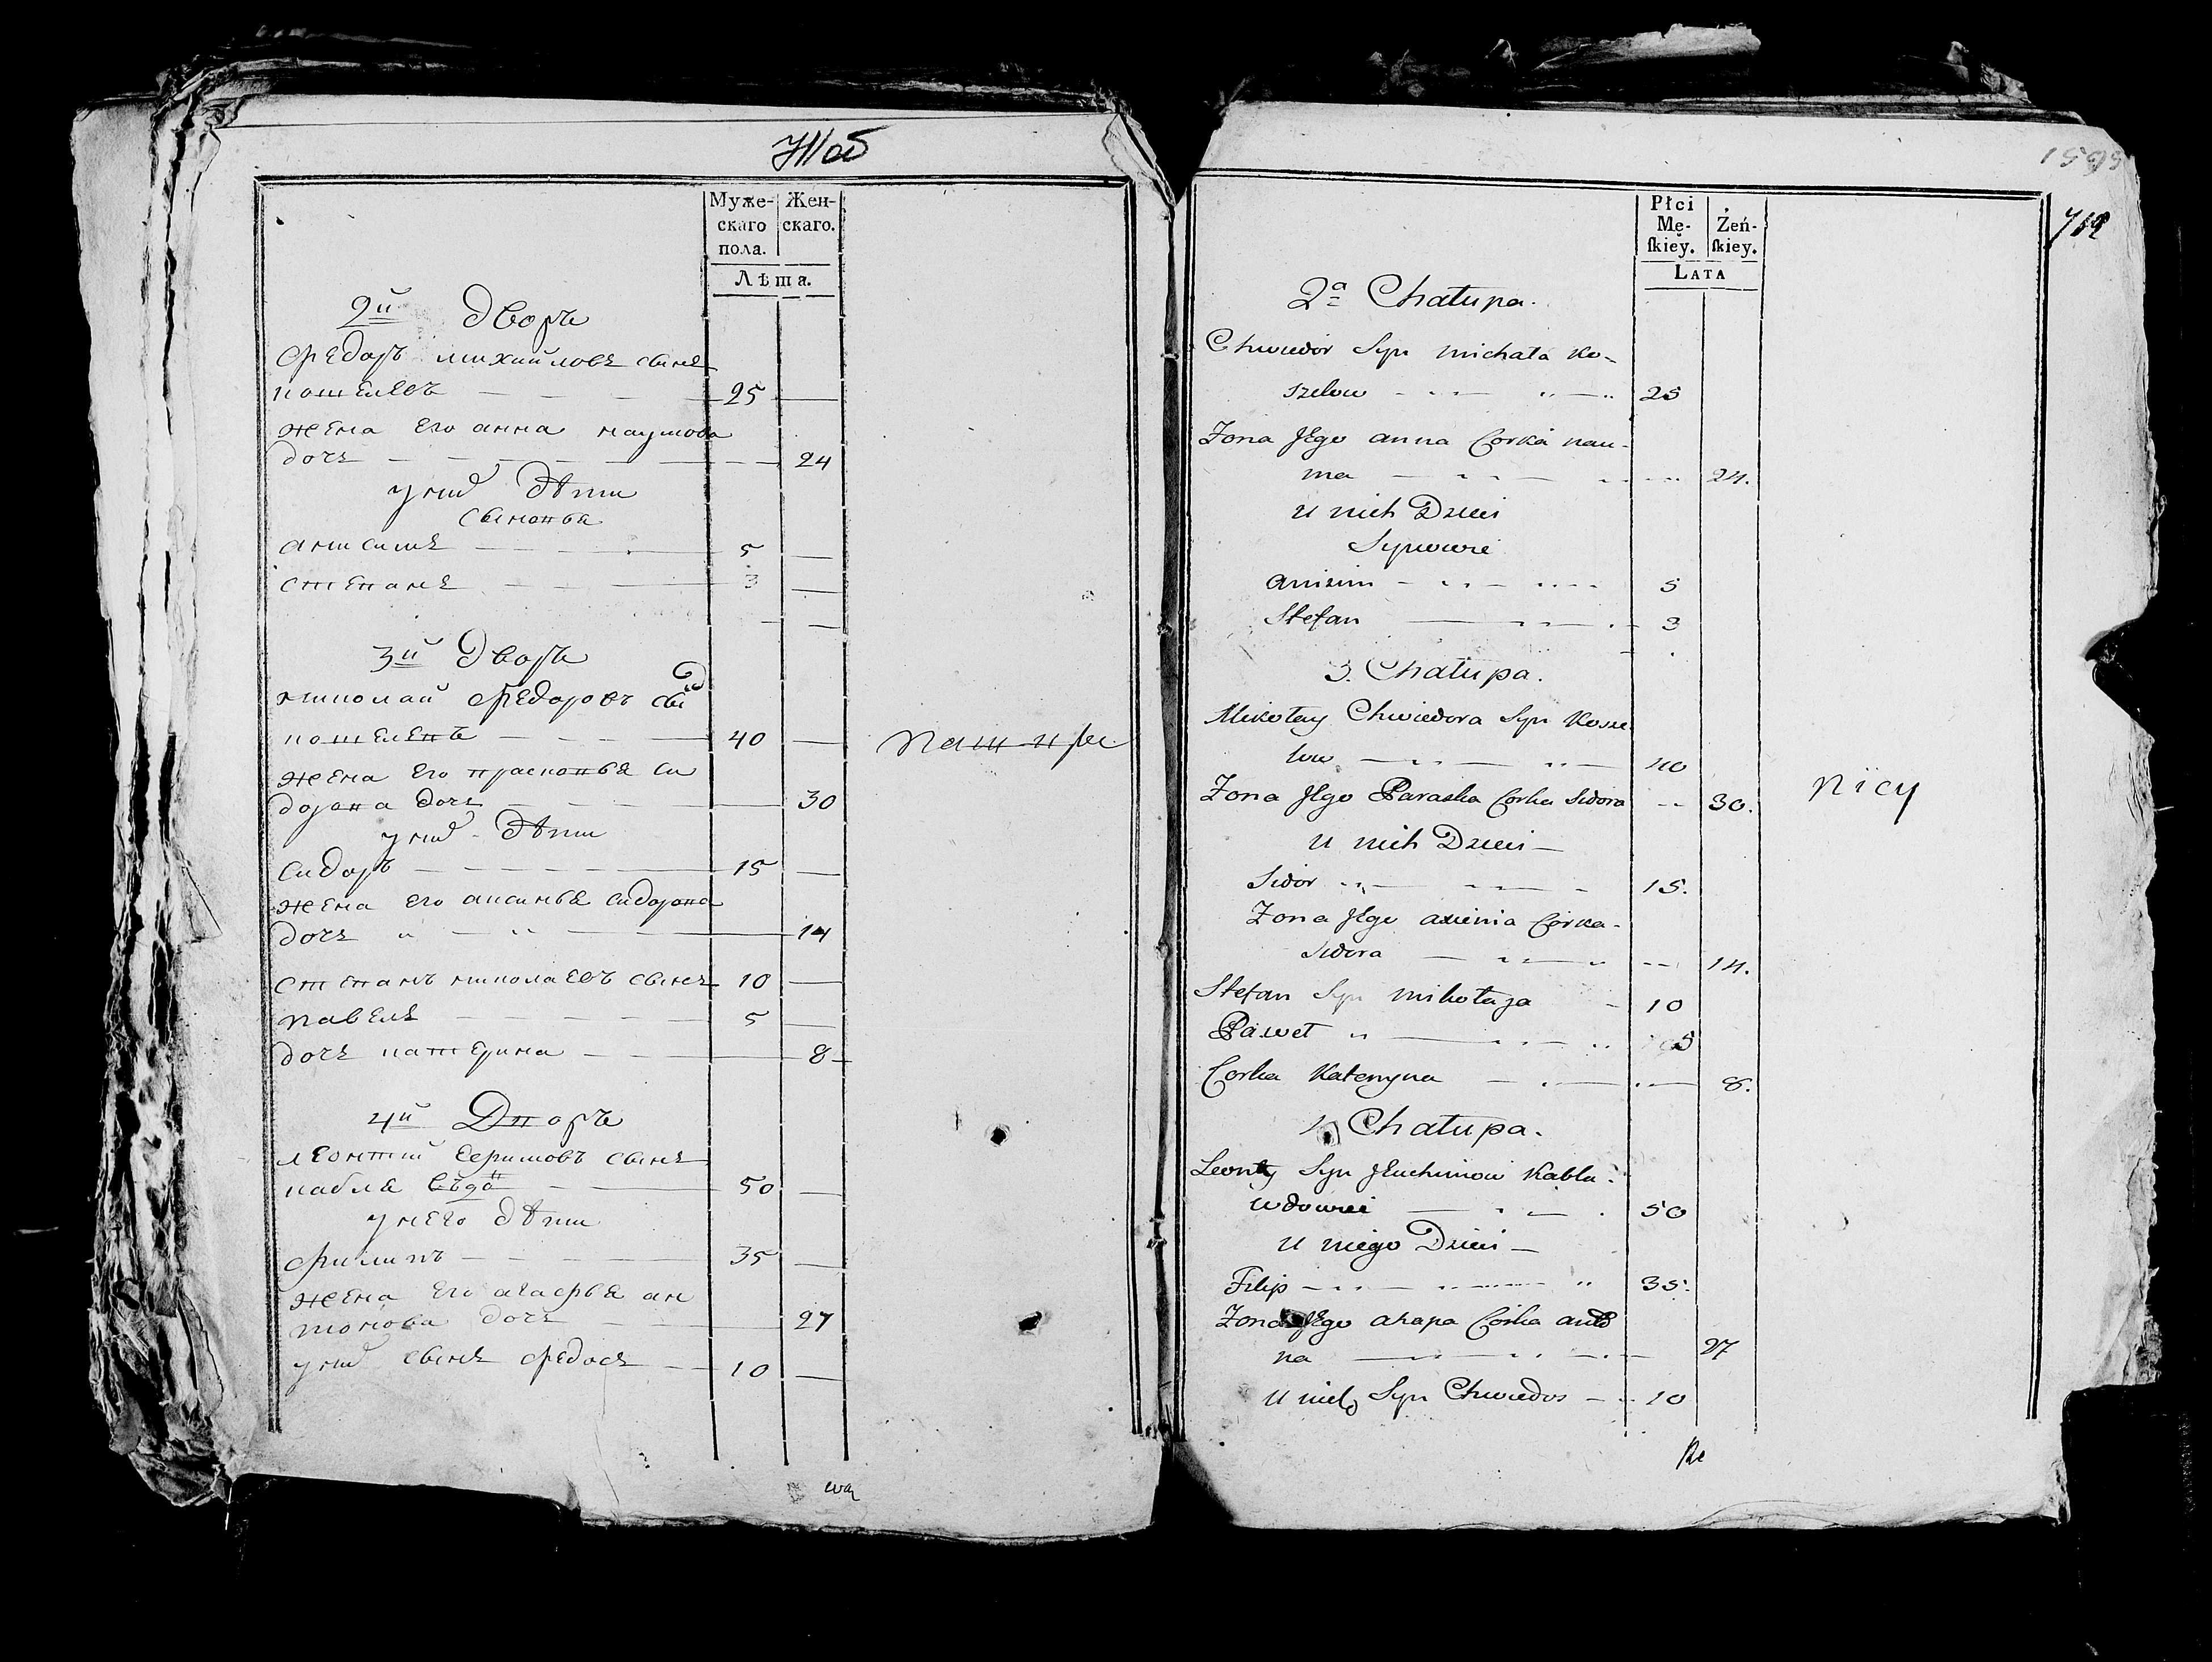 Муже-
скаго
пола.
Жен-
скаго.
Лѣта.
2й Дворъ
Федоръ михайловъ сынъ
кошелевъ — 25 —
жена его анна наумова
дочь — 24
у них дѣти
сыновья
анисимъ — 5 —
степанъ — 3 —
3й Дворъ
николай федоровъ сы
кошелевъ — 40 —
жена его прасковья си
дорова дочь — 30
у них дѣти
сидоръ — 15 —
жена его аксинья сидорова
дочь — 14
степанъ николаевъ сынъ 10 —
павелъ — 5 —
дочь катерина — 8
4й Дворъ
леонтий ефимовъ сынъ
кабля вдо — 50 —
у него дѣти
филипъ — 35 —
жена его агафья ан
тонова дочь — 27
у них сынъ федосъ — 10 —
Płci
Mę-
ſkiey.
Żeń-
ſkiey.
LATA
719
2a Chałupa.
Chwiedor Syn michała Ko-
szelow 25
Żona Jego anna Corka nau-
ma 24.
u nich Dzieci
Synowie
anisim 5
Stefan 3
3. Chałupa.
Mikołay Chwiedora Syn Kosze
low 40
Żona Jego Paraska Corka Sidora 30.
u nich Dzieci —
Sidor 15.
Żona Jego axienia Corka-
Sidora 14.
Stefan Syn mikołaja 10
Paweł 5
Corka Kateryna 8.
Chałupa.
Leonty Syn Jeuchimow Kabla
wdowiec 50
u niego Dzieci —
Filip 35.
Żona Jego ahapa Corka anto
na 27
u nich Syn Chwiedos 10